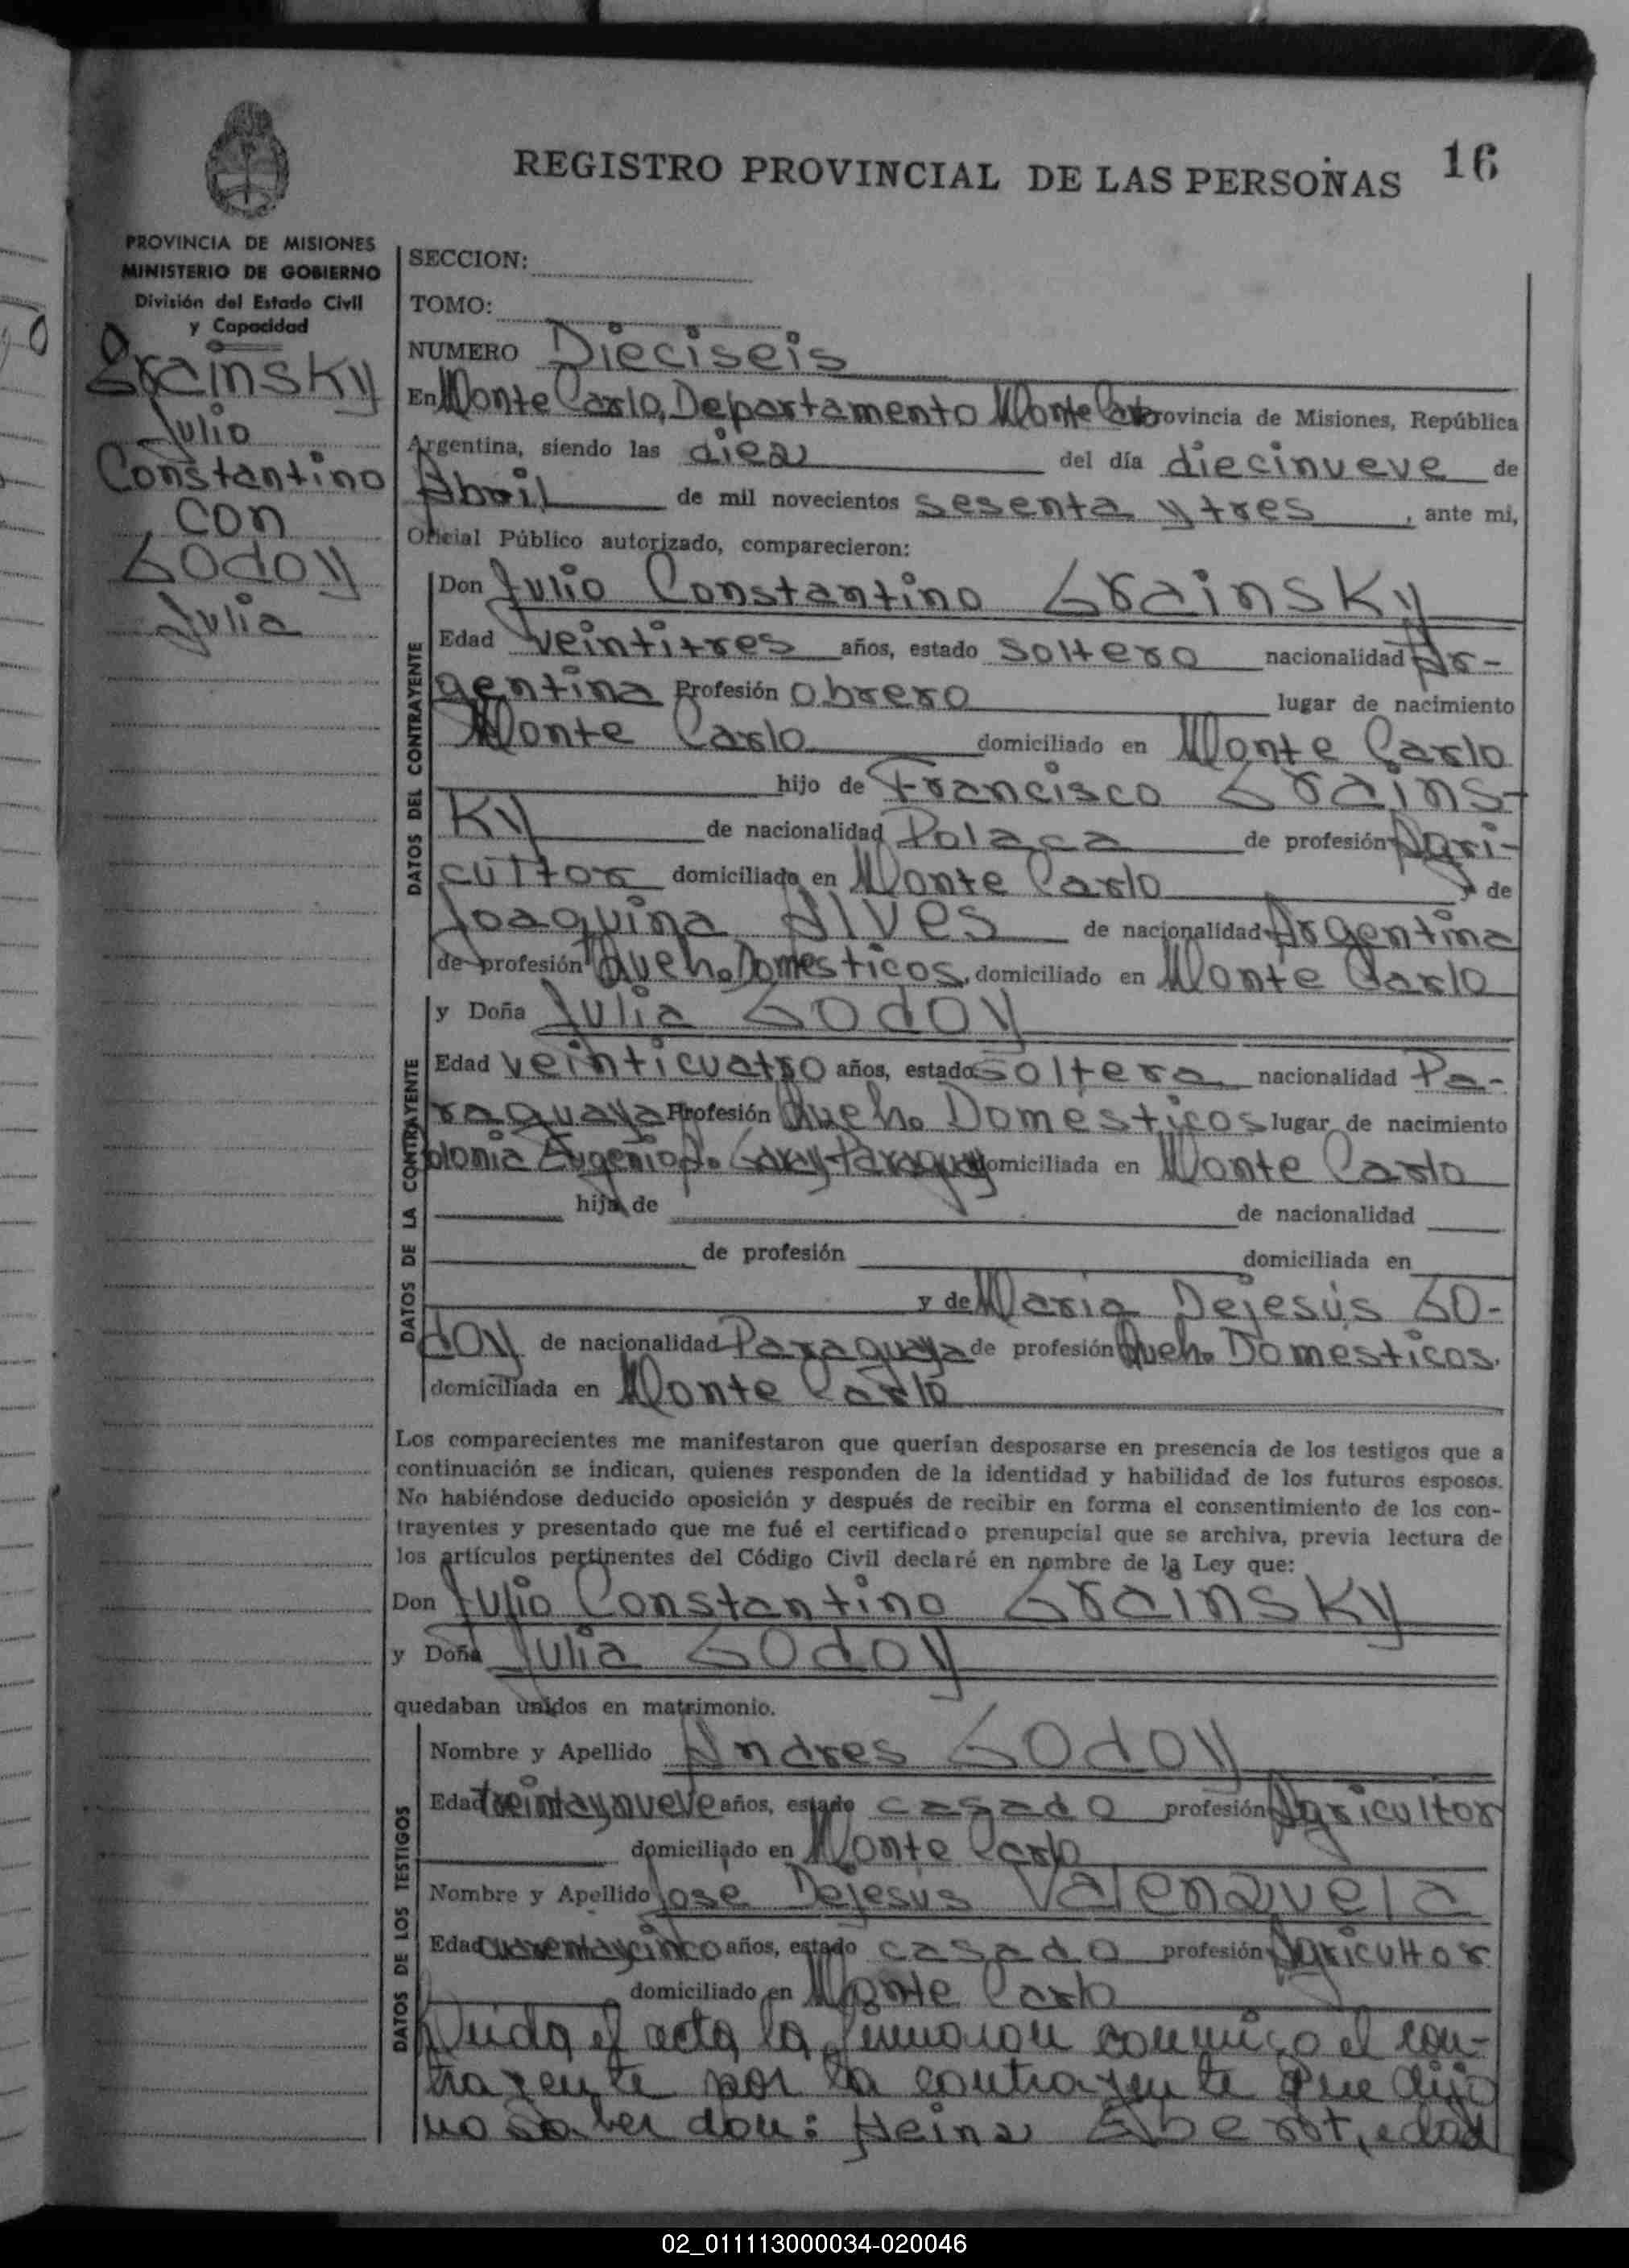 16
REGISTRO PROVINCIAL DE LAS PERSONAS
PROVINCIA DE MISIONES
MINISTERIO DE GOBIERNO
División del Estado Civil
y Capacidad
Grainsky
Julio
Constantino
con
Godoy
Julia
SECCION:
TOMO:
NUMERO Dieciseis
En Monte Carlo, Departamento Monte Carlo Provincia de Misiones, República
Argentina, siendo las diez del día diecinueve de
Abril de mil novecientos sesenta y tres, ante mi,
Oficial Público autorizado, comparecieron:
DATOS DEL CONTRAYENTE
Don Julio Constantino Grainsky
Edad veintitres años, estado soltero nacionalidad Ar-
gentina Profesión obrero lugar de nacimiento
Monte Carlo domiciliado en Monte Carlo
hijo de Francisco Grains-
Ky de nacionalidad Polaca de profesión Agri-
cultor domiciliado en Monte Carlo y de
Joaquina Alves de nacionalidad Argentina
de profesión Queh. Domesticos, domiciliado en Monte Carlo
DATOS DE LA CONTRAYENTE
y Doña Julia Godoy
Edad veinticuatro años, estado soltera nacionalidad Pa-
raguaya Profesión Queh. Domésticos lugar de nacimiento
Colonia Eugenio A. Garay-Paraguay domiciliada en Monte Carlo
hija de de nacionalidad
de profesión domiciliada en
y de Maria Dejesús Go-
doy de nacionalidad Paraguaya de profesión Queh. Domésticos.
domiciliada en Monte Carlo
Los comparecientes me manifestaron que querían desposarse en presencia de los testigos que a
continuación se indican, quienes responden de la identidad y habilidad de los futuros esposos.
No habiéndose deducido oposición y después de recibir en forma el consentimiento de los con-
trayentes y presentado que me fué el certificado prenupcial que se archiva, previa lectura de
los artículos pertinentes del Código Civil declaré en nombre de la Ley que:
Don Julio Constantino Grainsky
y Doña Julia Godoy
quedaban unidos en matrimonio.
DATOS DE LOS TESTIGOS
Nombre y Apellido Andres Godoy
Edad treintaynueve años, estado casado profesión Agricultor
domiciliado en Monte Carlo
Nombre y Apellido Jose Dejesus Valenzuela
Edad cuarentaycinco años, estado casado profesión Agricultor
domiciliado en Monte Carlo
Leida el acta la firmaron conmigo el con-
trayente por la contrayente que dijo
no saber don: Heinz Ebert, edad
02_011113000034-020046